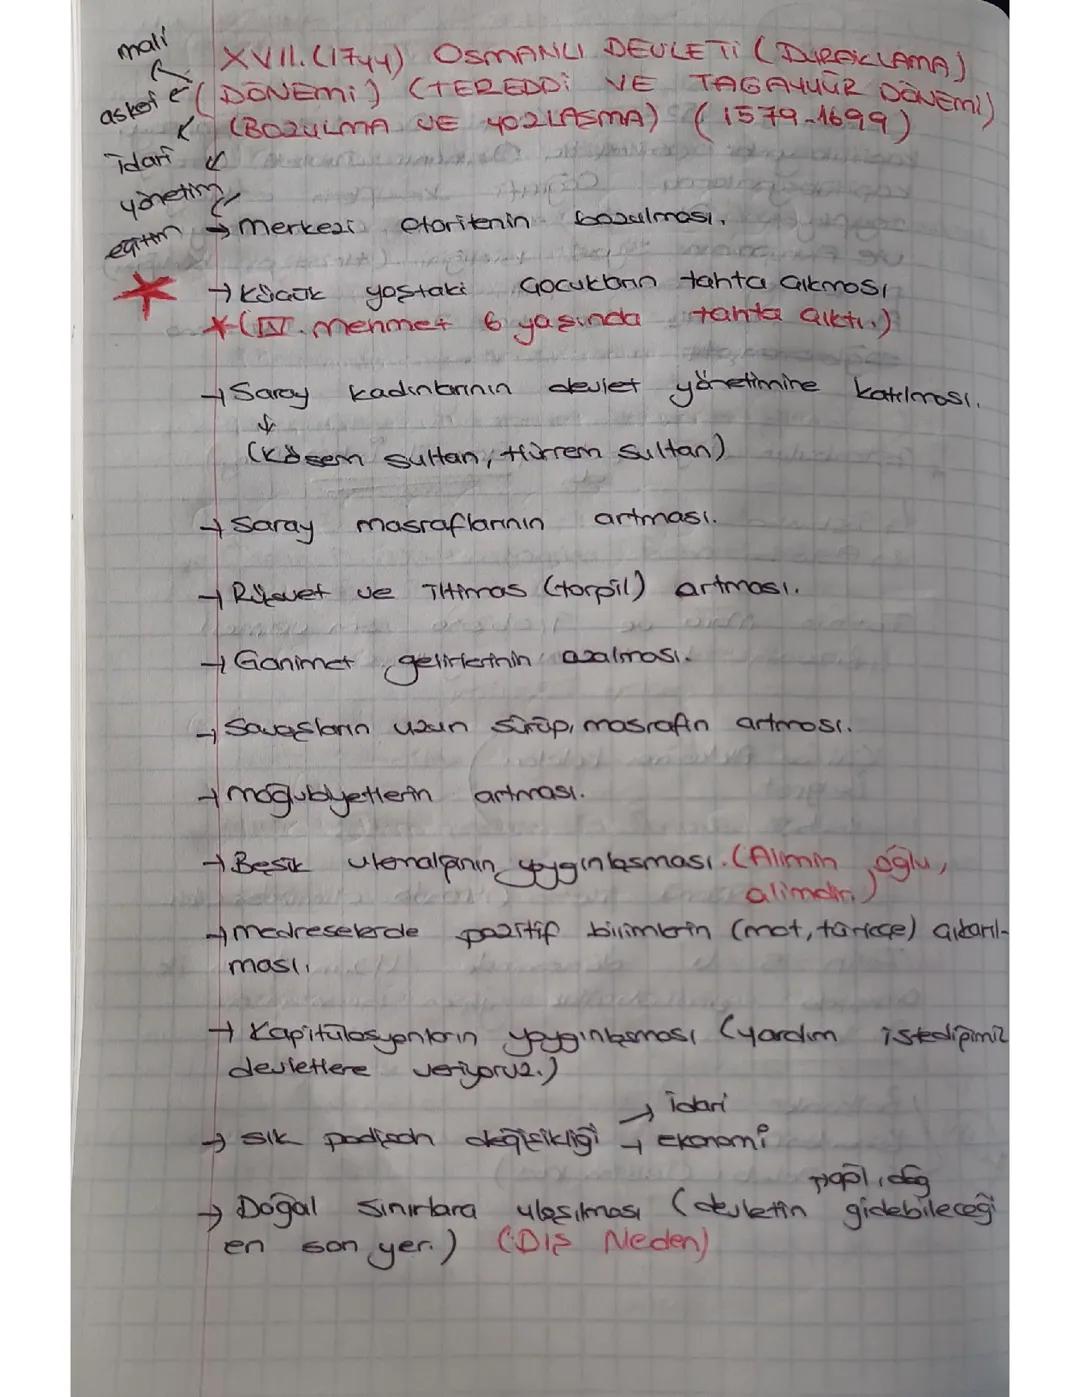 mali
askeri
idari
yönetim
eğitim
XVII. (17yy) OSMANLI DEVLETİ (DURAKLAMA)
(DÖNEMİ) (TEREDDİ VE TAGAYYÜR DÖNEMİ)
(BOZULMA VE YOZLAŞMA) (1579-1699)
→ Merkezi otoritenin bozulması.
→ Küçük yaştaki çocukların tahta çıkması
* (IV. Mehmet 6 yaşında tahta çıktı.)
→ Saray kadınlarının devlet yönetimine katılması.
(Kösem sultan, Hürrem sultan)
→ Saray masraflarının artması.
→ Rüşvet ve iltimas (torpil) artması.
→ Ganimet gelirlerinin azalması.
→ Savaşların uzun sürüp, masrafın artması.
→ mağubiyetlerin artması.
→ Beşik ulemalığının yaygınlaşması. (Alimin oğlu,
alimdir.)
→ medreselerde pozitif bilimlerin (mat, türkçe) çıkarıl-
ması.
→ Kapitülasyonların yaygınlaşması (yardım istediğimiz
devletlere veriyoruz.)
→ idari
→ sık padişah değişikliği → ekonomi
→ Doğal sınırlara ulaşılması (devletin gidebileceği
en son yer.) (DIŞ Neden)